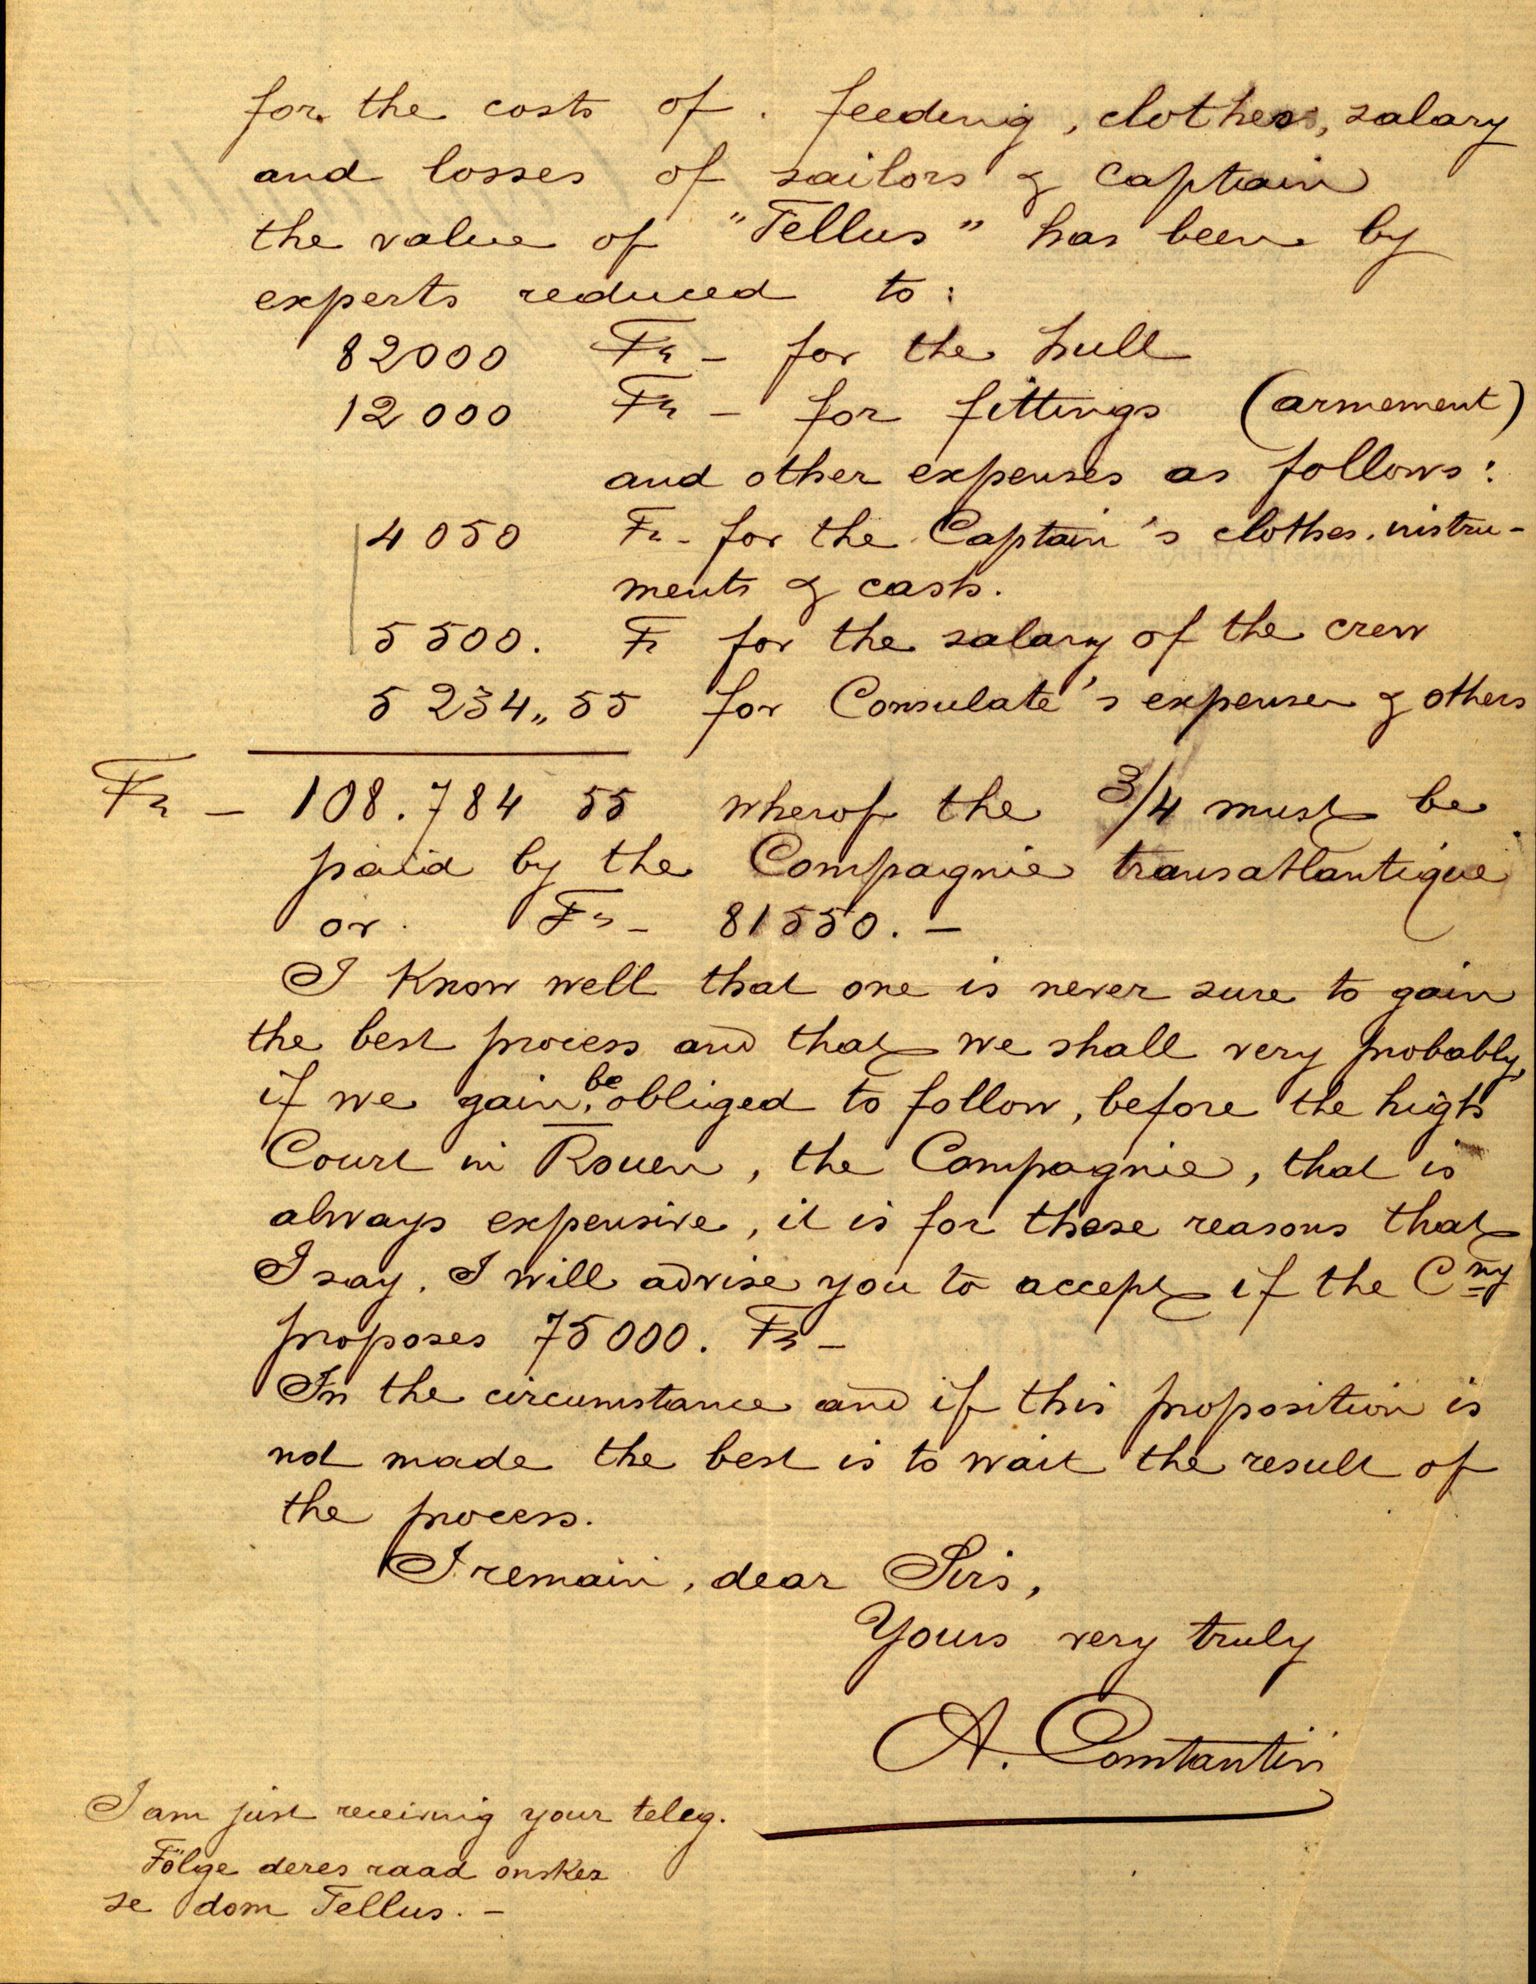 for the costs of . feeding, clothes, salary
and losses of sailors & captain
the value of "Tellus" has been by
experts reduced to:
82000 Fr - for the hull
12000 Fr - for fittings (armement)
and other expenses as follows:
4050 Fr - for the Captain's clothes. instru-
ments & cash.
5500. Fr for the salary of the crew
5234,, 55 for Consulate's expenses & others
Fr - 108.784 55 wherof the 3/4 must be
paid by the Compagnie transatlantique
or Fr - 81550. -
I know well that one is never sure to gain
the best process and that we shall very probably,
if we gain, be obliged to follow, before the high
Court in Rouen, the Compagnie, that is
always expensive, it is for these reasons that
I say. I will advise you to accept if the Cny
proposes 75000. Fr -
In the circumstance and if this proposition is
not made the best is to wait the result of
the process.
I remain, dear Sirs,
Yours very truly
A. Constantin
I am just receiving your teleg.
Fölge deres raad onsker
se dom Tellus. -